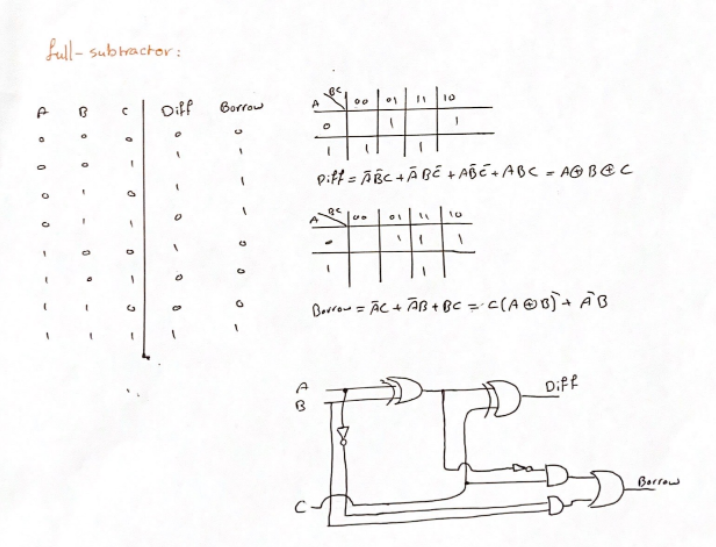 full-subtractor:
A B C Diff Borrow
0 0 0 0 0
0 0 1 1 1
0 1 0 1 1
0 1 1 0 1
1 0 0 1 0
1 0 1 0 0
1 1 0 0 0
1 1 1 1 1
A BC 00 01 11 10
0 1 1
1 1 1
Diff = A̅B̅C + A̅BC̅ + AB̅C̅ + ABC = A⊕B⊕C
A BC 00 01 11 10
0 1 1 1
1 1
Borrow = A̅C + A̅B + BC = C(A⊕B)̅ + A̅B
A
B
Diff
C
Borrow